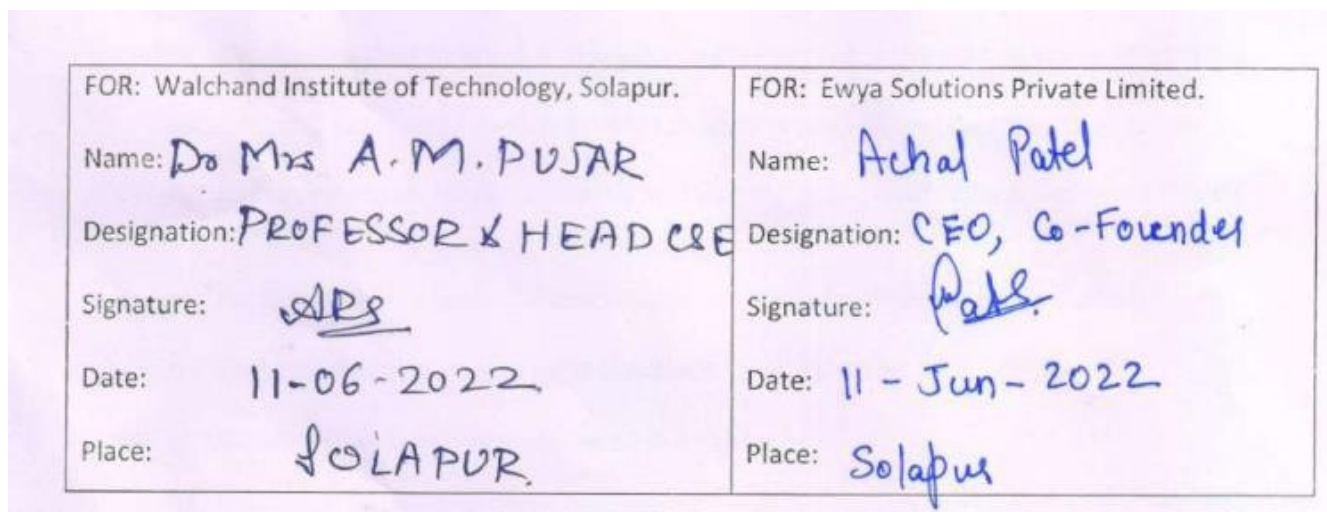 FOR: Walchand Institute of Technology, Solapur.
Name: Dr Mrs A.M. PUJAR
Designation: PROFESSOR & HEAD CSE
Signature:
Date: 11-06-2022
Place: SOLAPUR
FOR: Ewya Solutions Private Limited.
Name: Achal Patel
Designation: CEO, Co-Founder
Signature:
Date: 11-Jun-2022
Place: Solapur